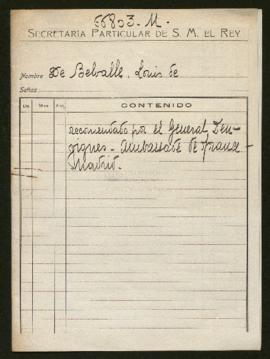 55803. M.
SECRETARÍA PARTICULAR DE S. M. EL REY
Nombre De Belvalle, Louis de
Señas
Día Mes Año CONTENIDO
recomendado por el General Den-
vignes - Ambassade de France -
Madrid.